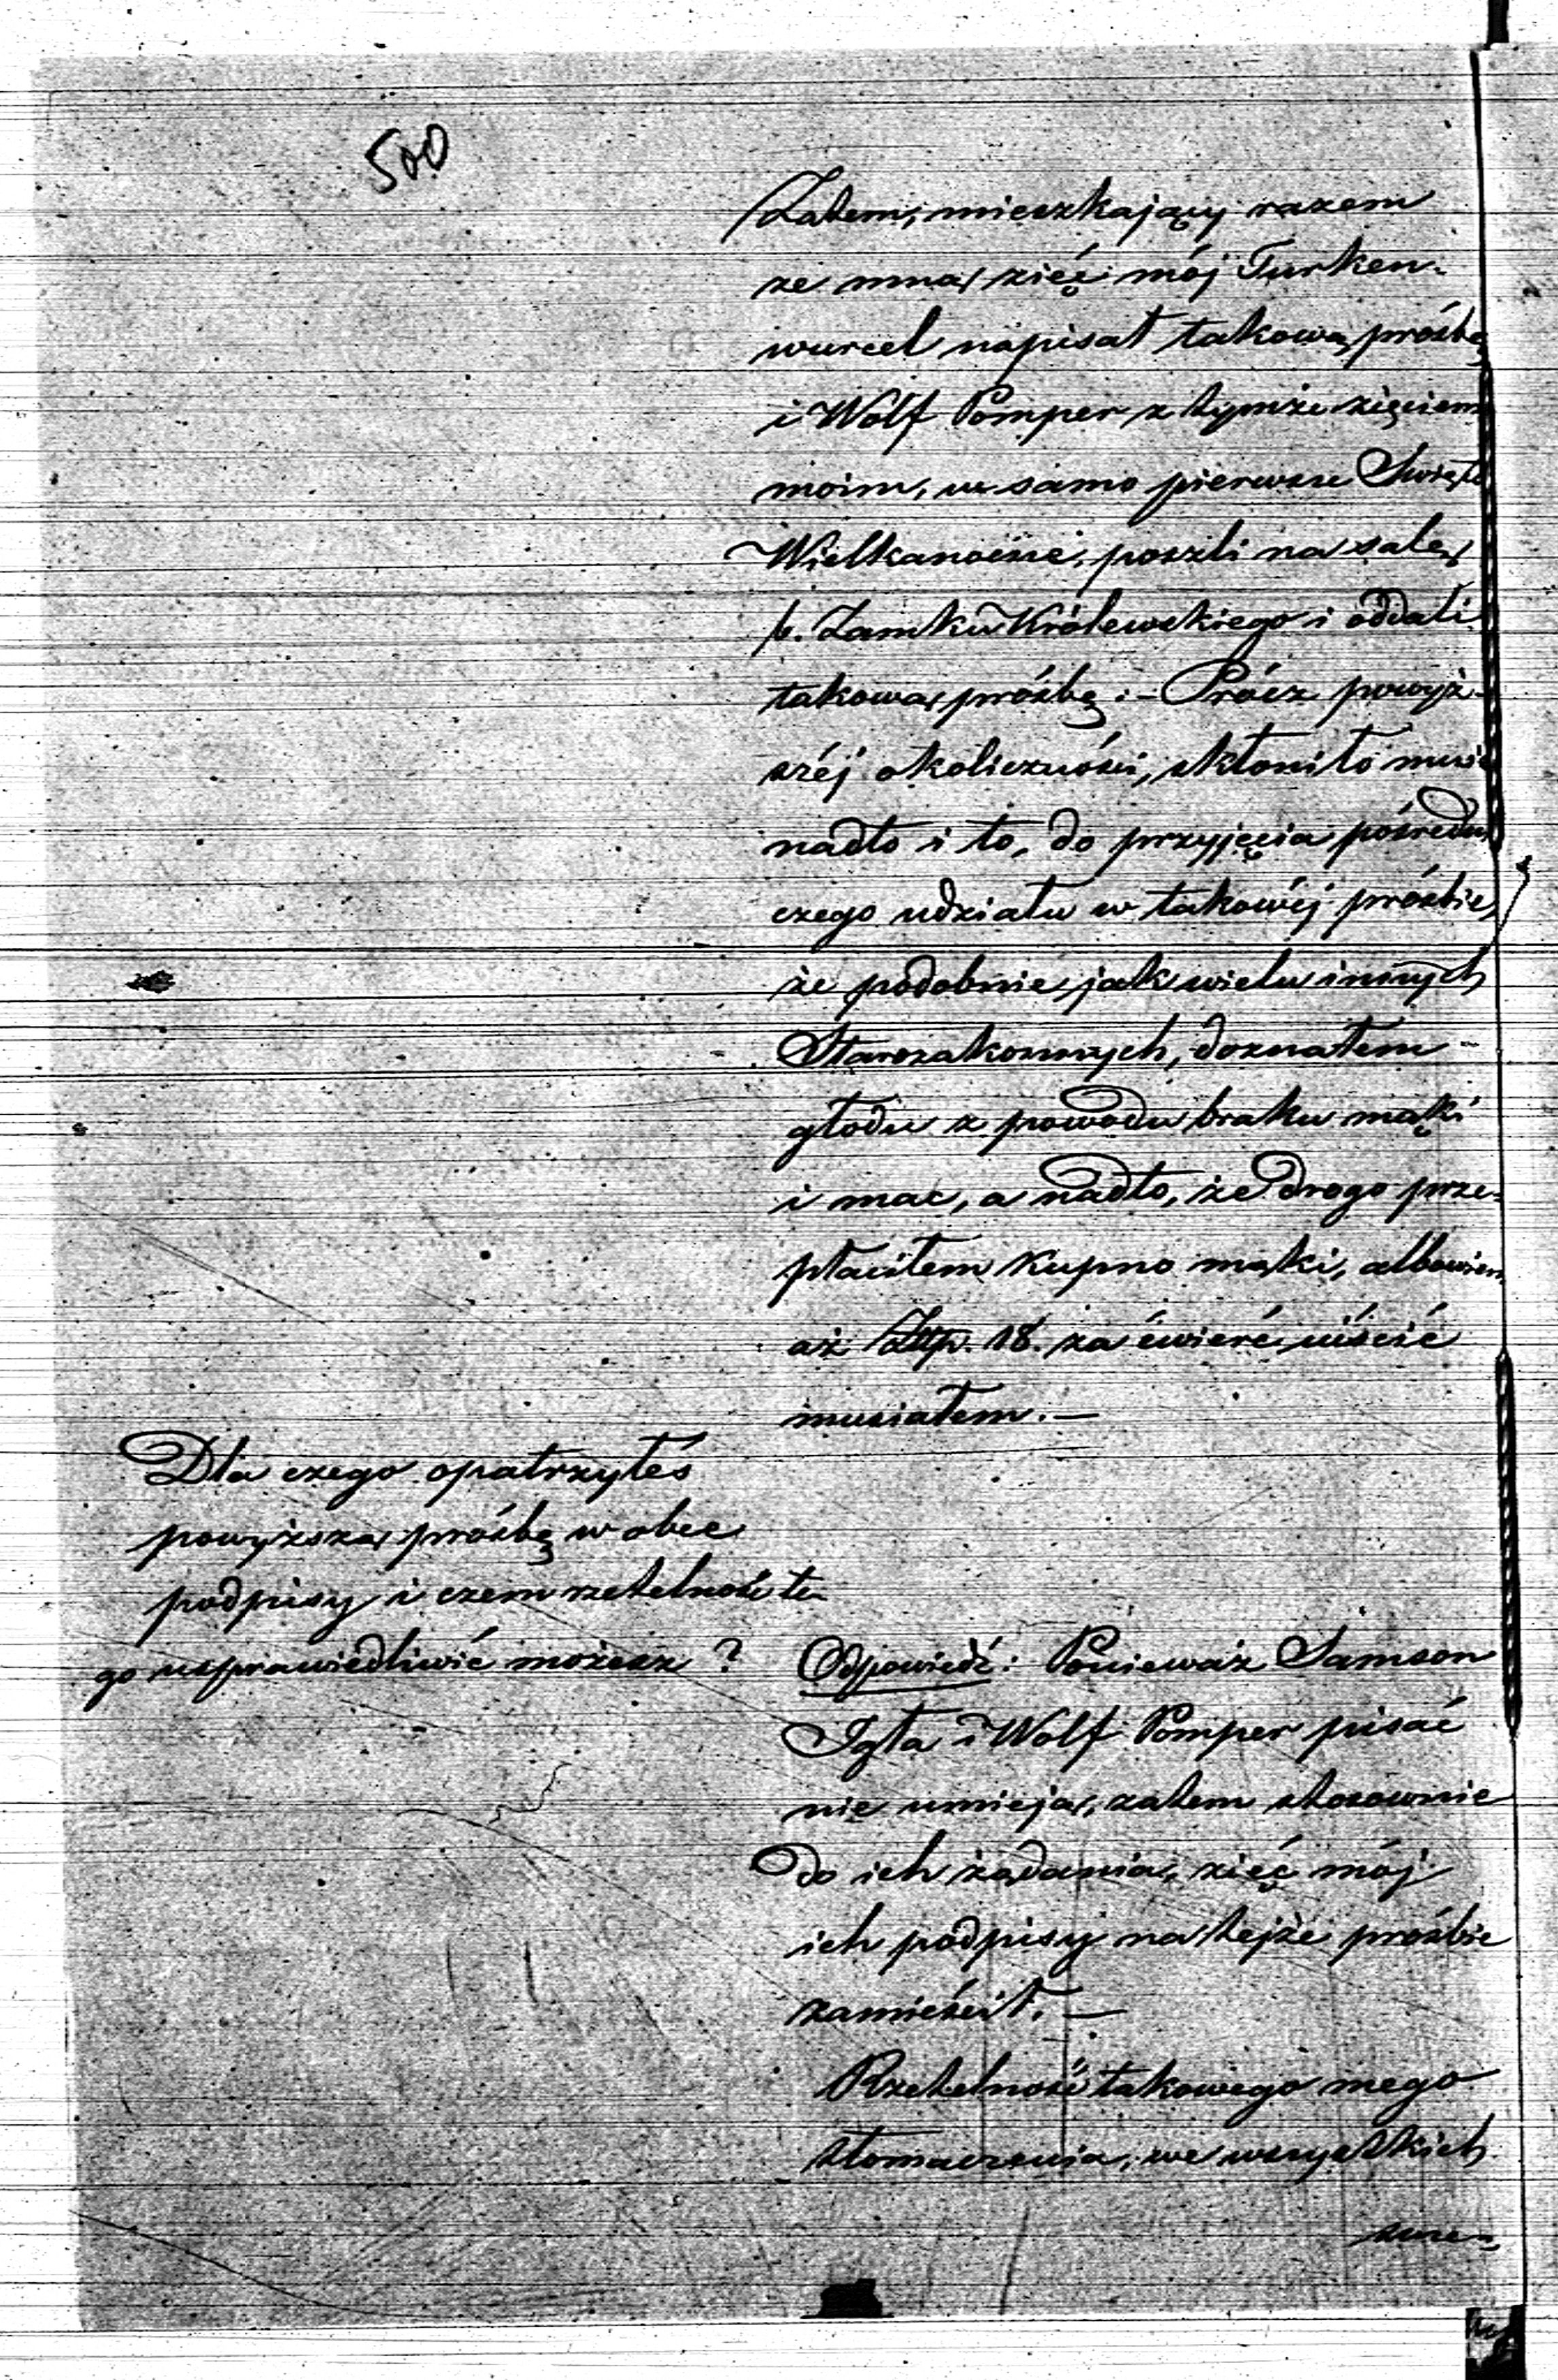 500
Zatem, mieszkający razem
ze mną, zięć mój Turken-
wurcel napisał takową prośbę
i Wolf Pomper z tymże zięciem
moim, w samo pierwsze Święto
Wielkanocne, poszli na salę
b. Zamku Królewskiego i oddali
takową prośbę. – Prócz powyż-
széj okoliczności, skłoniło mnie
nadto i to, do przyjęcia pośredni
czego udziału w takowéj prośbie,
że podobnie, jak wielu innych
Starozakonnych, doznałem
głodu z powodu braku mąki
i mac, a nadto, że drogo prze-
płaciłem kupno mąki, albowiem
aż Złtp. 18. za ćwierć uiścić
musiałem. –
Dla czego opatrzyłeś
powyższą prośbę w obce
podpisy i czem rzetelność te-
go usprawiedliwić możesz?
Odpowiedź: Ponieważ Samson
Igła i Wolf Pomper pisać
nie umieją, zatem stosownie
do ich żądania, zięć mój
ich podpisy na tejże prośbie
zamieścił. –
Rzetelność takowego mego
tłomaczenia, we wszystkich